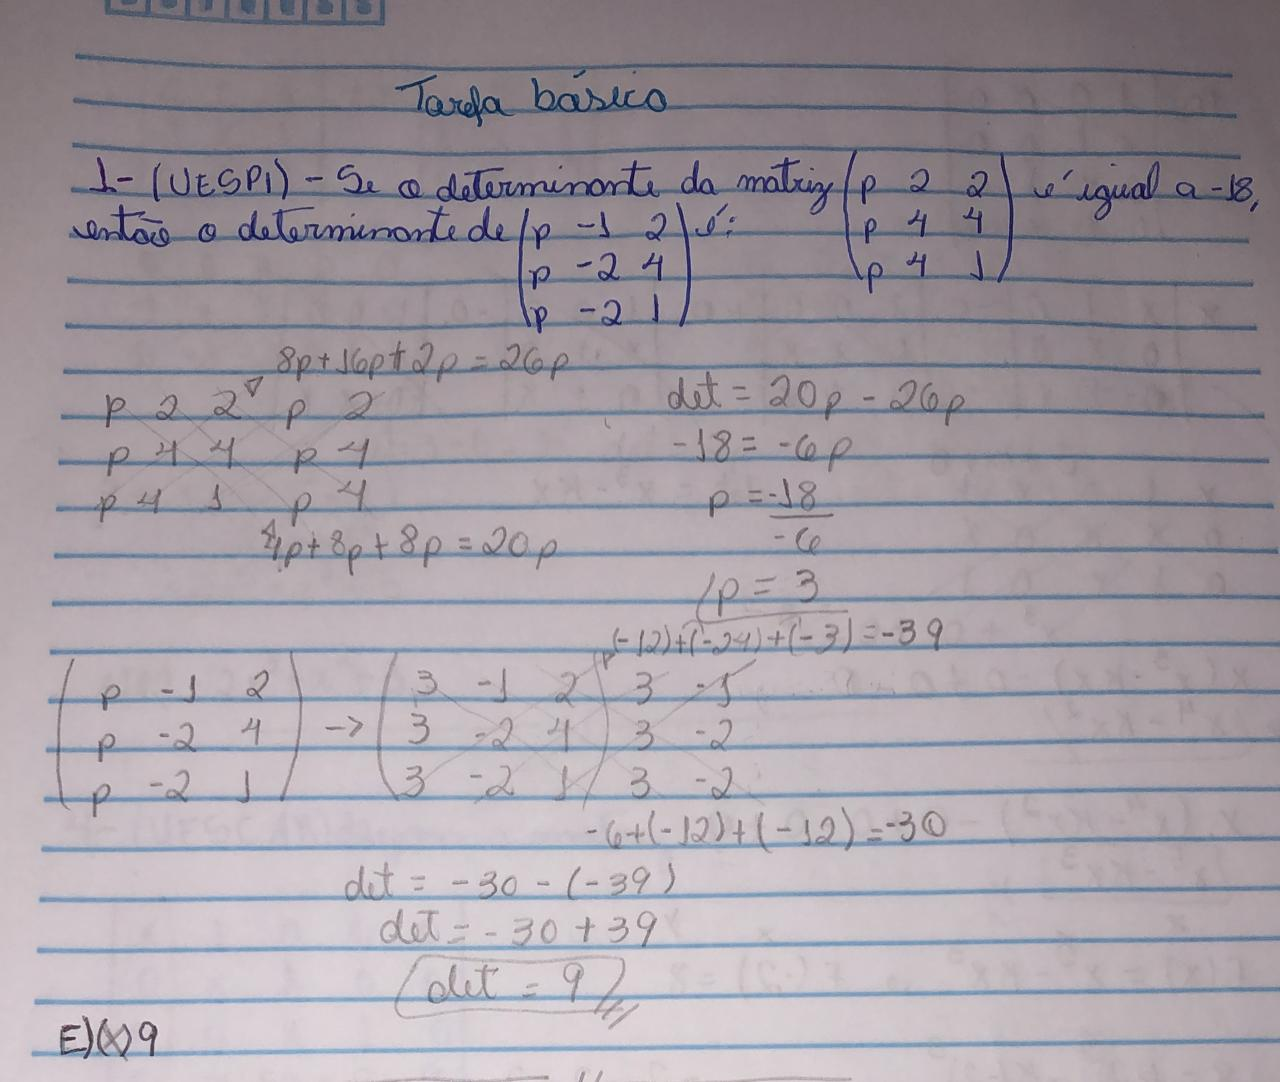 Tarefa básica
1- (UESPI) - Se o determinante da matriz (p 2 2) é igual a -18,
(p 4 4)
(p 4 1)
então o determinante de (p -1 2) é:
(p -2 4)
(p -2 1)
8p+16p+2p=26p
p 2 2 p 2
p 4 4 p 4
p 4 1 p 4
4p+8p+8p=20p
det = 20p - 26p
-18 = -6p
p = -18
-6
p = 3
(-12)+(-24)+(-3)=-39
(p -1 2) -> (3 -1 2) 3 -1
(p -2 4) (3 -2 4) 3 -2
(p -2 1) (3 -2 1) 3 -2
-6+(-12)+(-12)=-30
det = -30 - (-39)
det = -30 + 39
det = 9
E)(x) 9